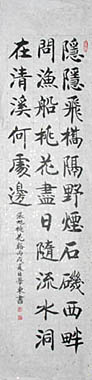 隱隱飛橋隔野煙石磯西畔
問漁船桃花盡日隨流水洞
在清溪何處邊
張旭桃花谿丙戌夏日夢東書